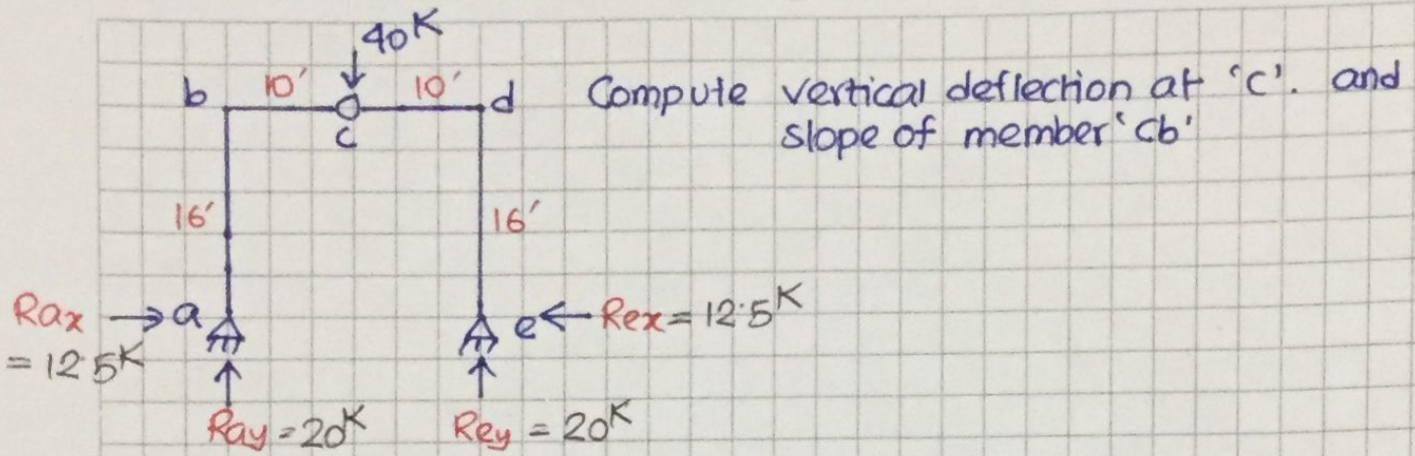 40K
b 10' 10' d Compute vertical deflection at 'c'. and
c slope of member 'cb'
16' 16'
Rax → a e ← Rex = 12.5K
= 12.5K
Ray = 20K Rey = 20K